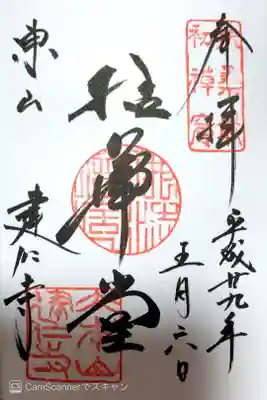 奉拝
扶桑最
初禅窟
平成廿九年
五月六日
拈華堂
東山
建仁寺
CS CamScannerでスキャン